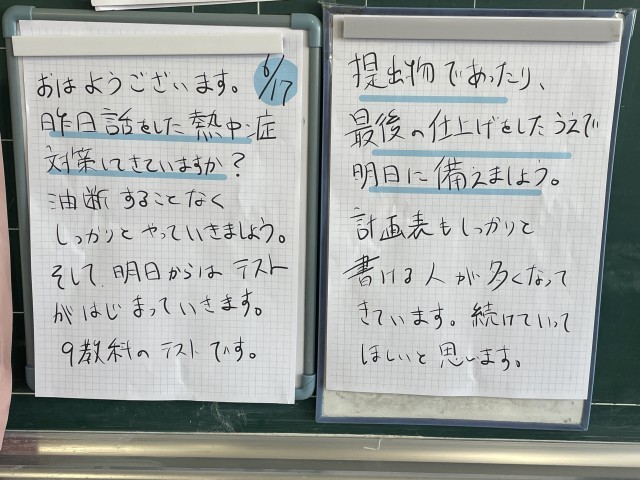 6/17
おはようございます。
昨日話をした熱中症
対策してきていますか?
油断することなく
しっかりとやっていきましょう。
そして、明日からはテスト
がはじまっていきます。
9教科のテストです。
提出物であったり、
最後の仕上げをしたうえで
明日に備えましょう。
計画表もしっかりと
書ける人が多くなって
きています。続けていって
ほしいと思います。